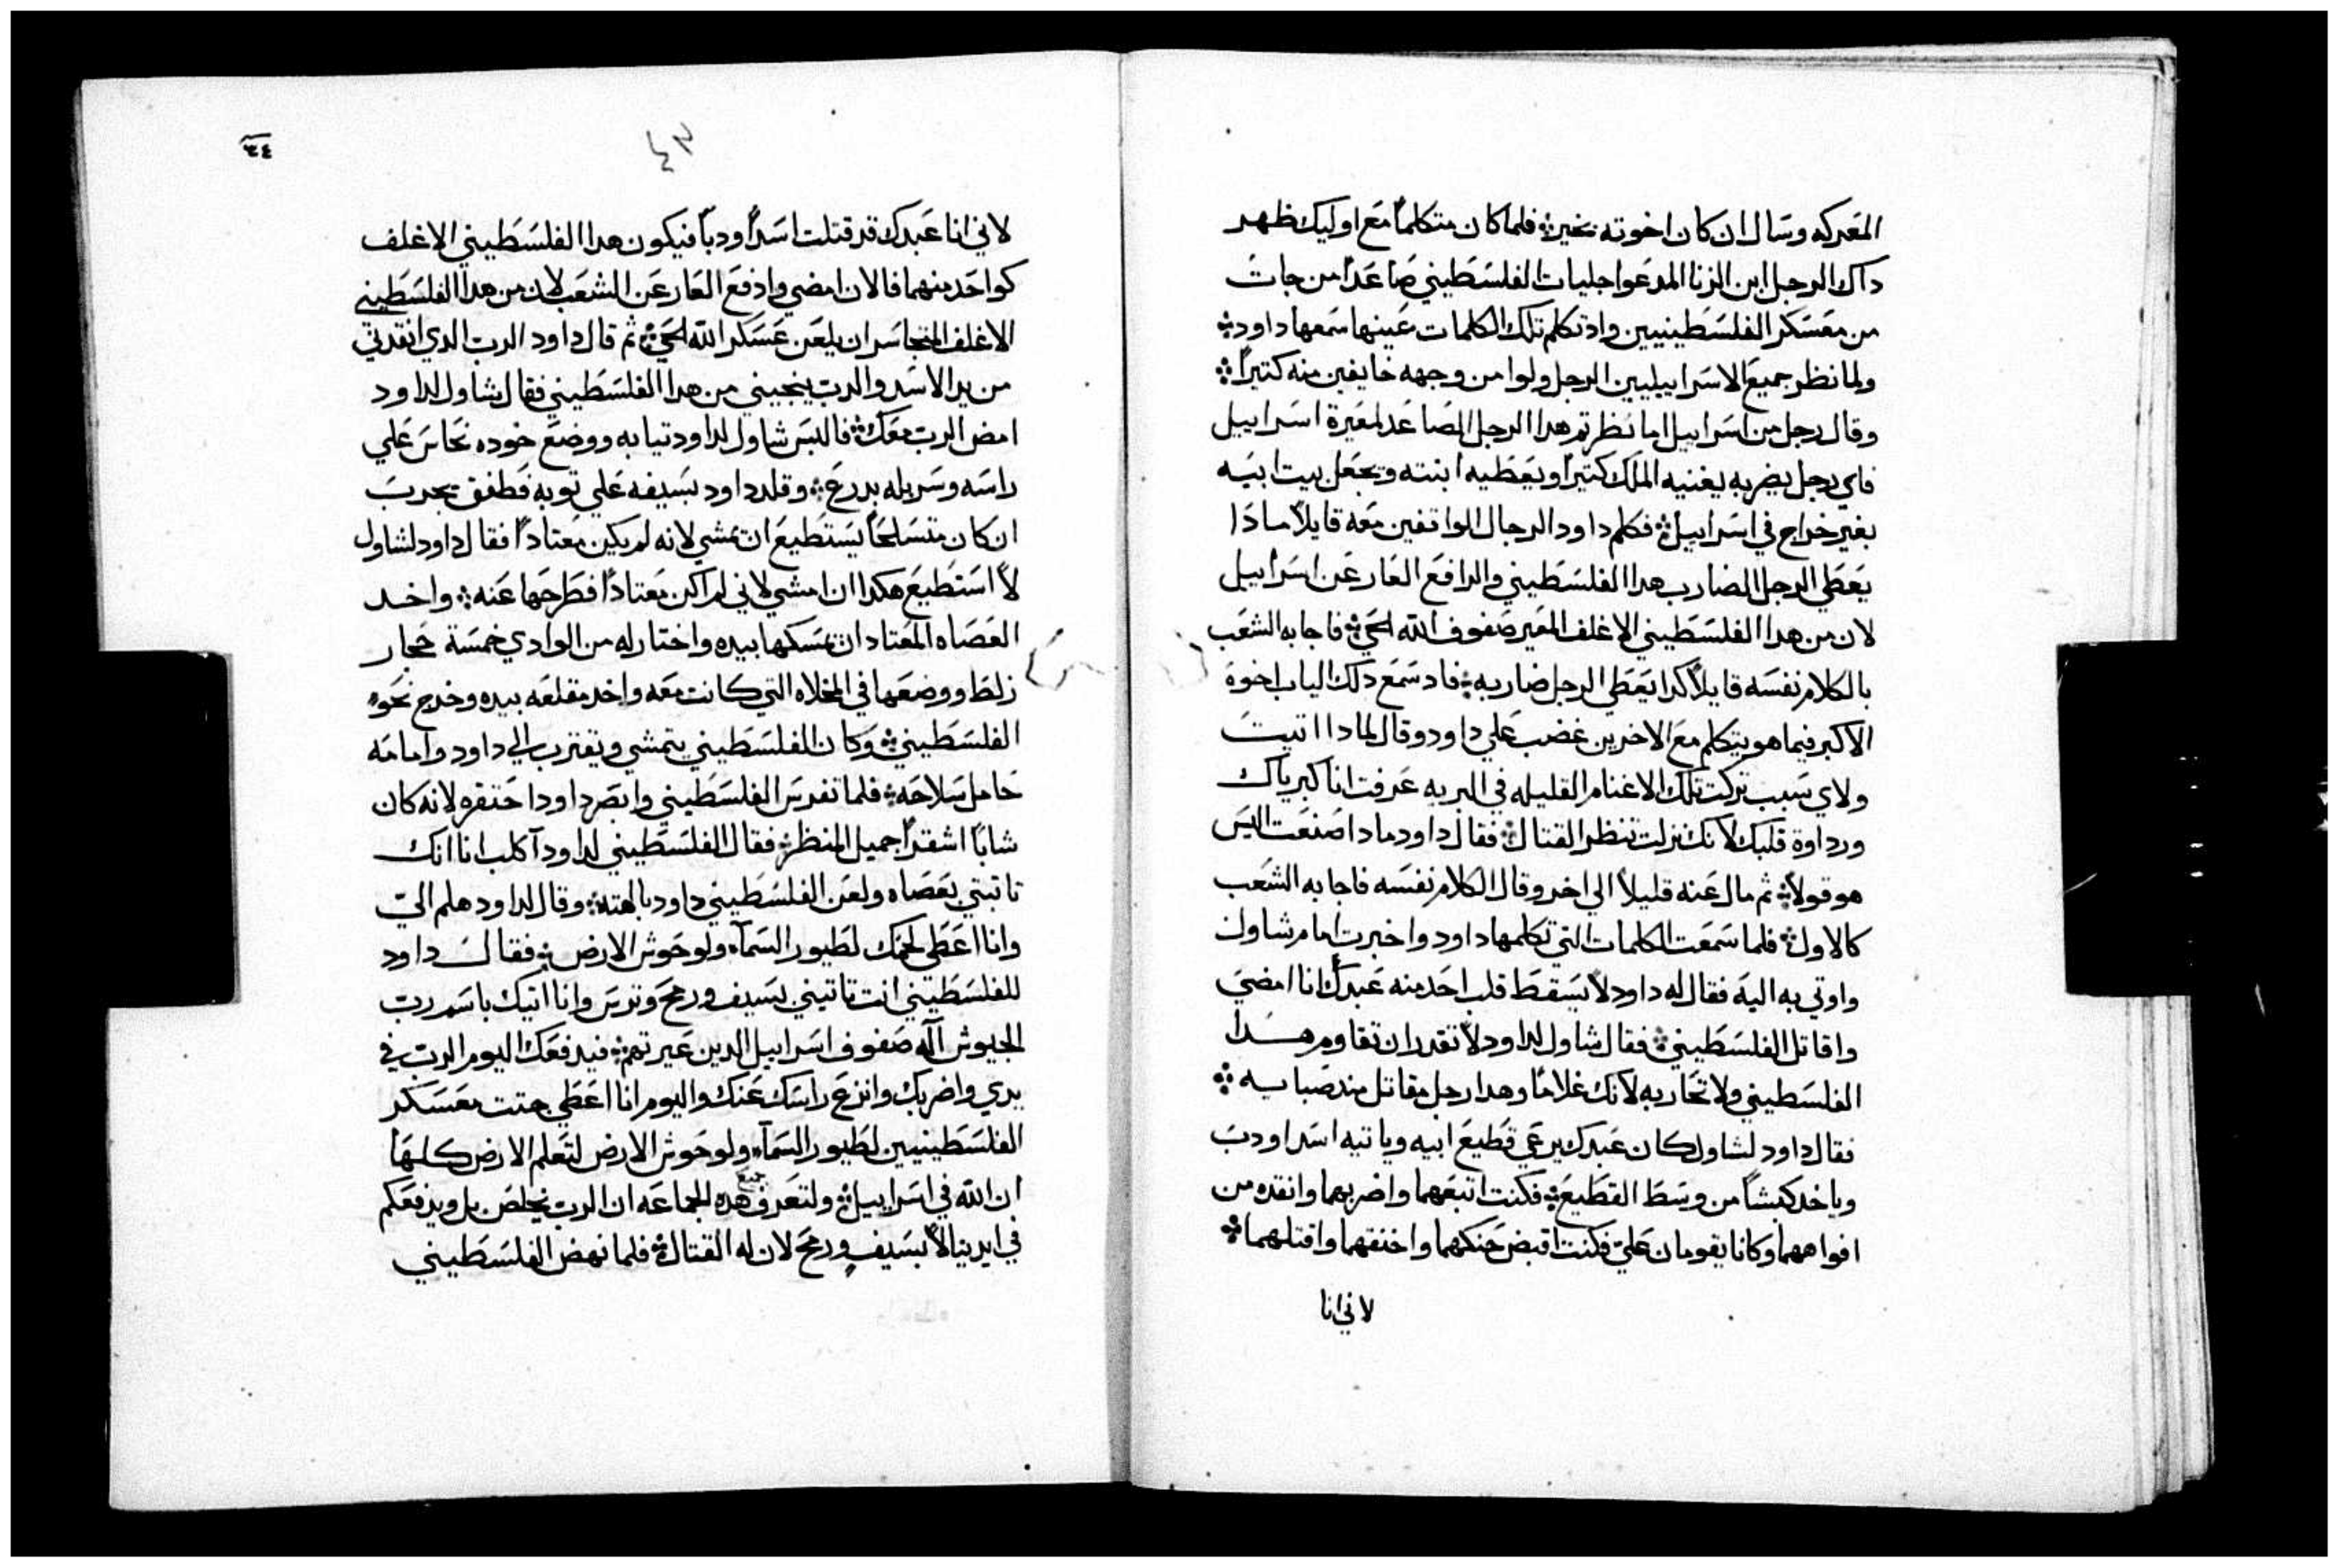 المعركه وسال ان كان اخوته بخير ܀ فلما كان متكلماً مع اوليك ظهر
داك الرجل ابن الزنا المدعوا جليات الفلسطيني صاعداً من جات
من معسكر الفلسطينيين واد تكلم تلك الكلمات عينها سمعها داود ܀
ولما نظر جميع الاسراييليين الرجل ولوا من وجهه خايفين منه كتيراً ܀
وقال رجل من اسراييل اما نظرتم هدا الرجل الصاعد لمعيرة اسراييل
فاي رجل يضربه يغنيه الملك كتيراً ويعطيه ابنته ويجعل بيت ابيه
بغير خراج في اسراييل ܀ فكلم داود الرجال الواقفين معه قايلاً مادا
يعطي الرجل الضارب هدا الفلسطيني والرافع العار عن اسراييل
لان من هدا الفلسطيني الاغلف المعير صفوف الله الحي ܀ فاجابه الشعب
بالكلام نفسه قايلاً كدا يعطي الرجل ضاربه ܀ فاد سمع دلك الياب اخوة
الاكبر فيما هو يتكلم مع الاخرين غضب علي داود وقال لمادا اتيت
ولاي سبب تركت تلك الاغنام القليله في البريه عرفت انا كبرياك
ورداوة قلبك لانك نزلت تنظر القتال ܀ فقال داود مادا صنعت اليس
هو قولاً ܀ ثم مال عنه قليلاً الي اخر وقال الكلام نفسه فاجابه الشعب
كالاول ܀ فلما سمعت الكلمات التي تكلمها داود واخبرت امام شاول
واوتي به اليه فقال له داود لا يسقط قلب احد منه عبدك انا امضي
واقاتل الفلسطيني ܀ فقال شاول لداود لا تقدر ان تقاوم هدا
الفلسطيني ولا تحاربه لانك غلاماً وهدا رجل مقاتل مند صبايه ܀
فقال داود لشاول كان عبدك يرعي قطيع ابيه وياتيه اسد او دب
وياخد كبشاً من وسط القطيع ܀ فكنت اتبعهما واضربهما وانقده من
افواههما وكانا يقومان علي فكنت اقبض حنكهما واخنقهما واقتلهما ܀
لاني انا
٣٤
لاني انا عبدك قد قتلت اسداً ودباً فيكون هدا الفلسطيني الاغلف
كواحد منهما فالان امضي وادفع العار عن الشعب لان من هدا الفلسطيني
الاغلف المتجاسر ان يلعن عسكر الله الحي ܀ ثم قال داود الرب الدي انقدني
من يد الاسد والدب ينجيني من هدا الفلسطيني فقال شاول لداود
امض الرب معك ܀ فالبس شاول لداود تيابه ووضع خوده نحاس علي
راسه وسربله بدرع ܀ وقلد داود بسيفه علي توبه فطفق يجرب
ان كان متسلحاً يستطيع ان يمشي لانه لم يكن معتاداً فقال داود لشاول
لا استطيع هكدا ان امشي لاني لم اكن معتاداً فطرحها عنه ܀ واخد
العصاه المعتاد ان يمسكها بيده واختار له من الوادي خمسة حجار
زلط ووضعها في المخلاه التي كانت معه واخد مقلعه بيده وخرج نحو
الفلسطيني ܀ وكان الفلسطيني يتمشي ويقترب الي داود وامامه
حامل سلاحه ܀ فلما تفرس الفلسطيني وابصر داود احتقره لانه كان
شاباً اشقراً جميل المنظر ܀ فقال الفلسطيني لداود آكلب انا انك
تاتيني بعصاه ولعن الفلسطيني داود بالهته ܀ وقال لداود هلم الي
وانا اعطي لحمك لطيور السمآء ولوحوش الارض ܀ فقال داود
للفلسطيني انت تاتيني بسيف ورمح وترس وانا اتيك باسم رب
الجيوش آله صفوف اسراييل الدين عيرتهم ܀ فيدفعك اليوم الرب في
يدي واضربك وانزع راسك عنك واليوم انا اعطي جتت معسكر
الفلسطينيين لطيور السمآء ولوحوش الارض لتعلم الارض كلها
ان الله في اسراييل ܀ ولتعرف جميع هده الجماعه ان الرب يخلص بل ويدفعكم
في ايدينا لا بسيف ورمح لان له القتال ܀ فلما نهض الفلسطيني